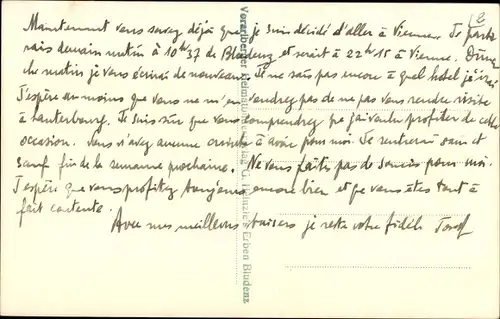 Maintenant vous savez déjà que je suis décidé d'aller à Vienne. Je parti-
rais demain matin à 10h37 de Bludenz et serait à 22h15 à Vienne. Diman-
che matin je vous écrirai de nouveau. Je ne sais pas encore à quel hôtel j'irai.
J'espère au moins que vous ne m'en voudrez pas de ne pas vous rendre visite
à Lauterbourg. Je suis sûr que vous comprendrez que j'ai voulu profiter de cette
occasion. Vous n'avez aucune crainte à avoir pour moi. Je rentrerai sain et
sauf fin de la semaine prochaine. Ne vous faites pas de soucis pour moi.
J'espère que vous profitez toujours encore bien et que vous êtes tout à
fait contente.
Avec mes meilleurs baisers je reste votre fidèle
Vorarlberger Heimatverlag G. Heinzle's Erben Bludenz